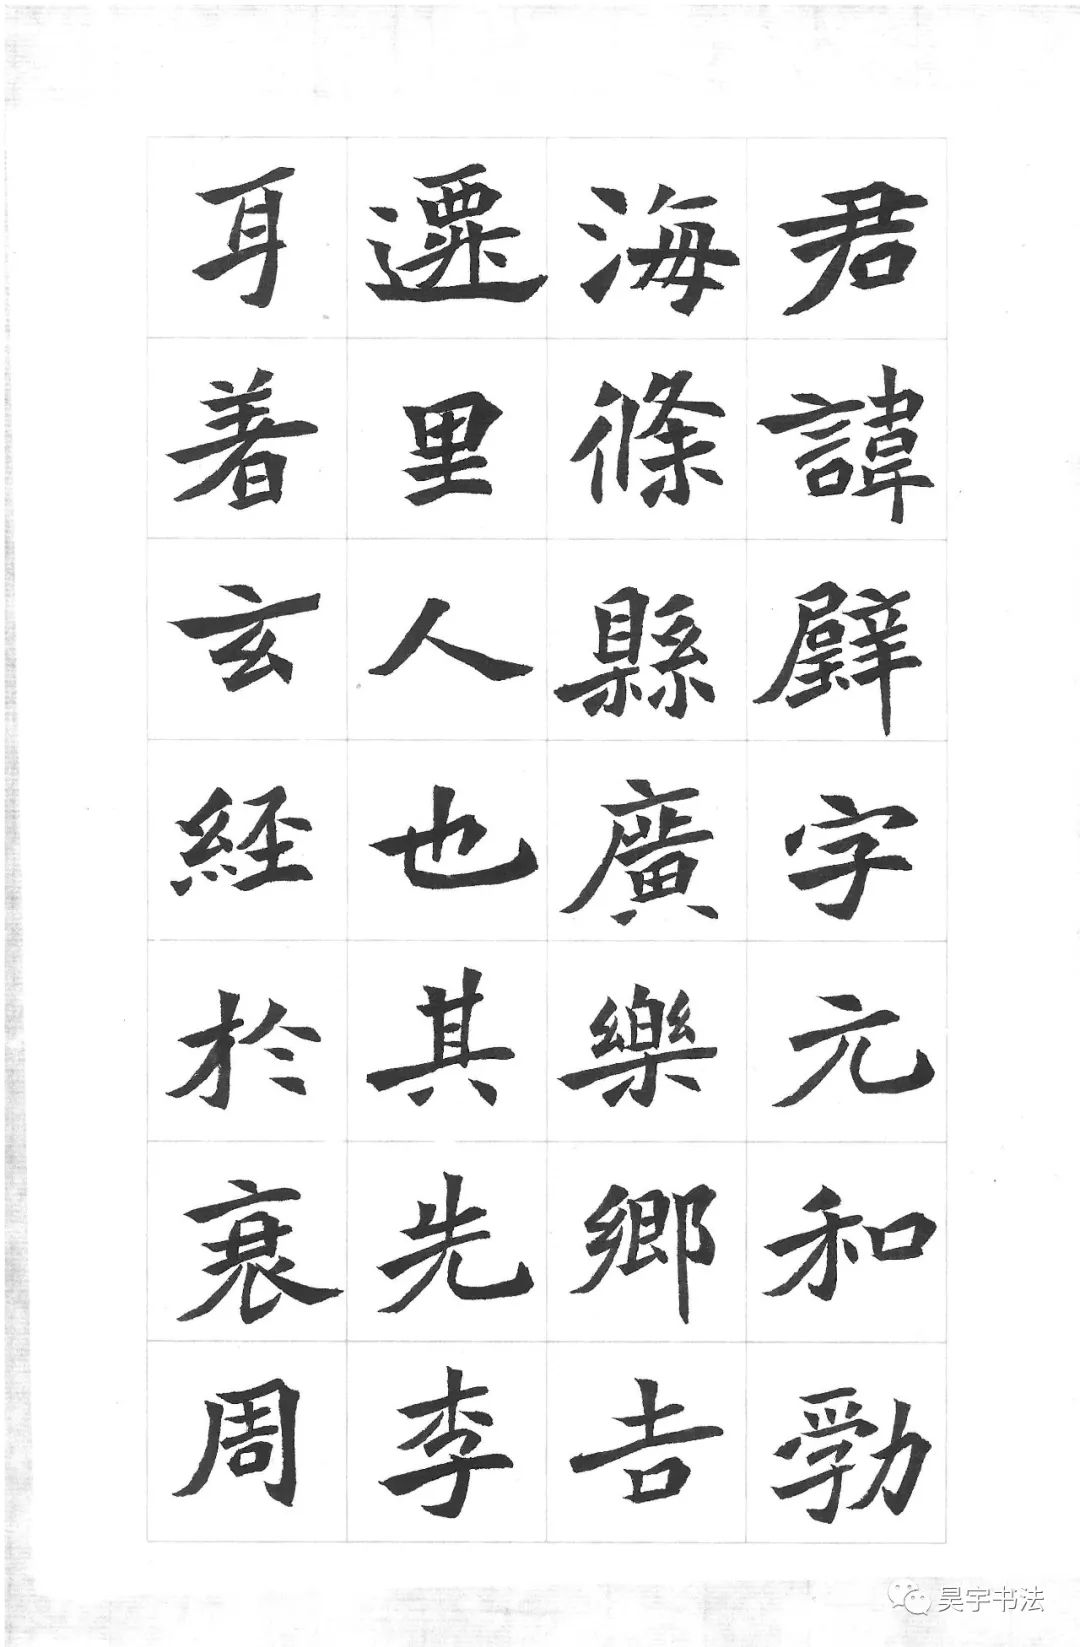 君諱璧字元和勃
海條縣廣樂鄉吉
遷里人也其先李
耳著玄經於衰周
昊宇书法